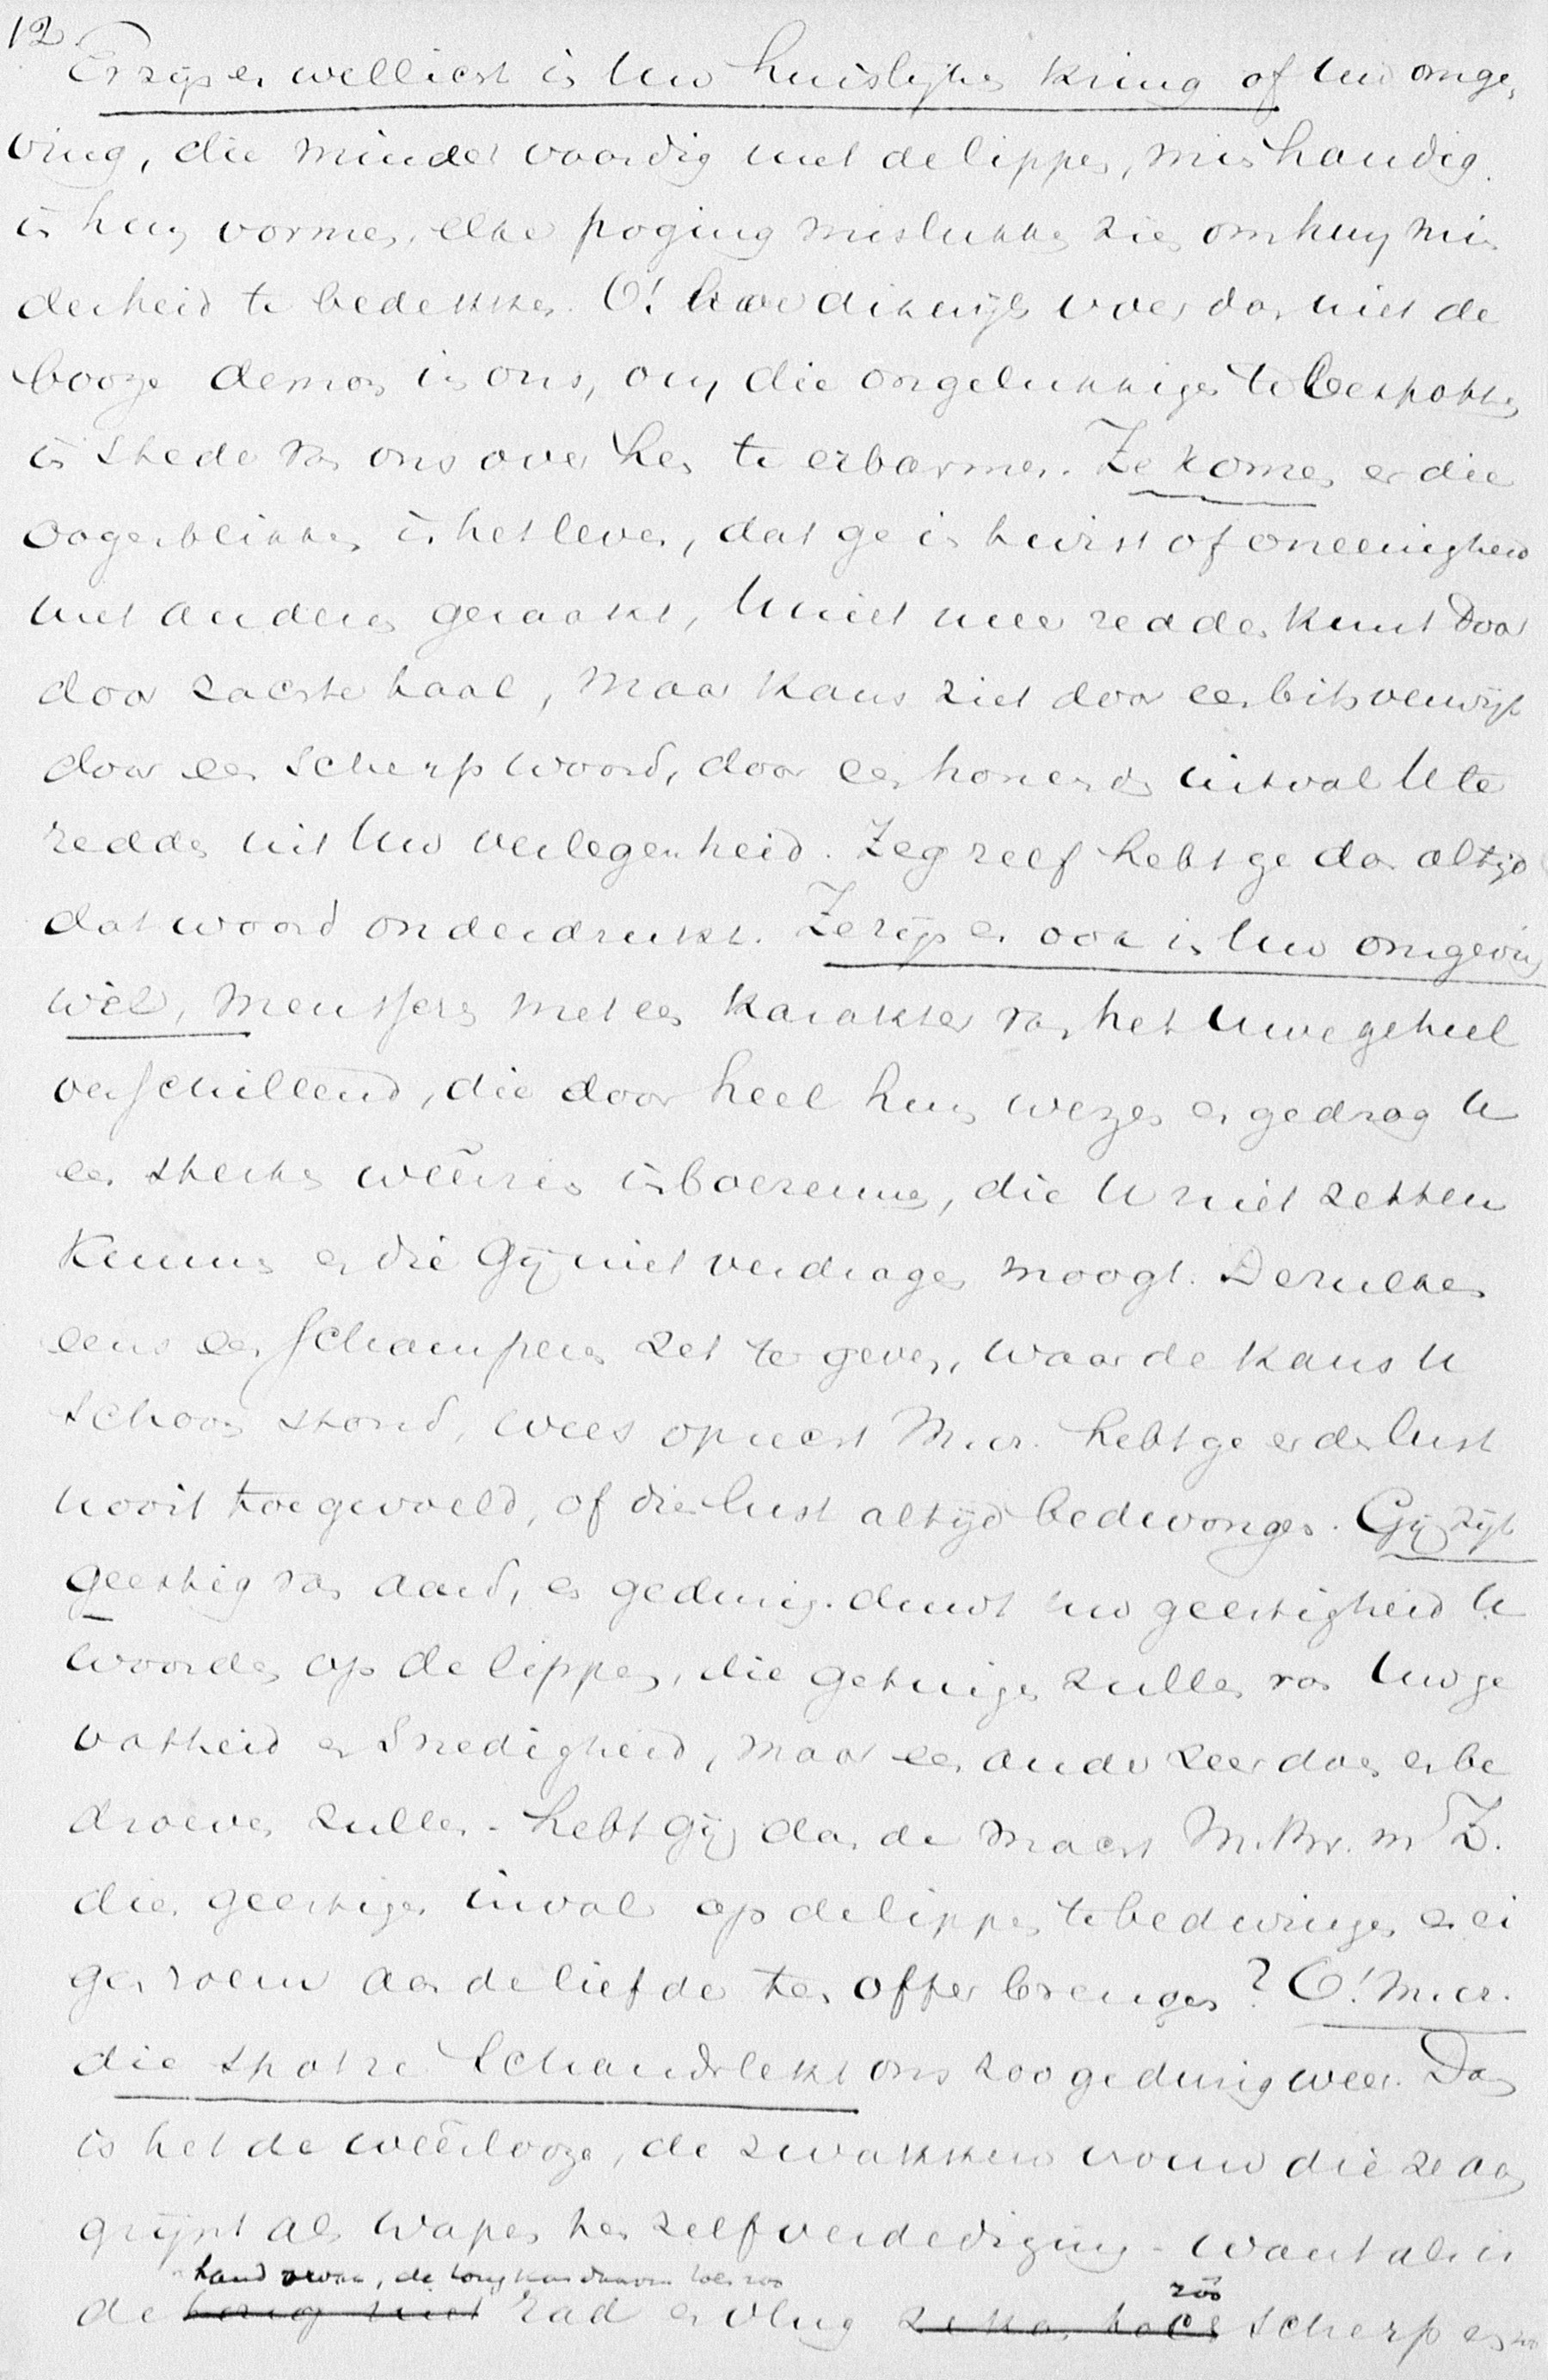 12
Er zijn er wellicht in Uw huislijken kring of Uw omge,
ving, die minder vaardig met de lippen, min handig
in hun vormen, elke poging mislukken zien om hun min
derheid te bedekken. O! hoe dikwijls voer dan niet de
booze demon in ons, om die ongelukkigen te bespotten
in stede van ons over hen te erbarmen. Ze komen er die
oogenblikken in het leven, dat ge in twist of oneenigheid
met anderen geraakt, U niet meer redden kunt door
door zachte taal, maar kans ziet door een bits verwijt
door een scherp woord, door een honenden uitval U te
redden uit Uw verlegenheid. Zeg zelf hebt ge dan altijd
dat woord onderdrukt. Ze zijn er ook in Uw omgeving
wel, menschen met een karakter van het Uwe geheel
verschillend, die door heel hun wezen en gedrag U
een sterken weêrzin inboezemen, die U niet zetten
kunnen en die Gij niet verdragen moogt. Denzulken
eens een schamperen zet te geven, waar de kans U
schoon stond, wees oprecht M.cr. hebt ge er den lust
nooit toe gevoeld, of die lust altijd bedwongen. Gij zijt
geestig van aard, en gedurig duwt uw geestigheid U
woorden op de lippen, die getuigen zullen van Uw ge
vatheid en snedigheid, maar een ander zeer doen en be
droeven zullen. Hebt Gij dan de macht M. Br. en Z.
dien geestigen inval op de lippen te bedwingen en ei
gen roem aan de liefde ten offer brengen? O! M.cr.
die spotzieke Schandvlekt ons zoo gedurig weer. Dan
is het de weêrlooze, de zwakkere vrouw die ze aan
grijpt als wapen ter zelfverdediging - want al is
hand zwak, de tong kan daarom wel zoo
de tong niet rad en vlug zoo scherp en zoo